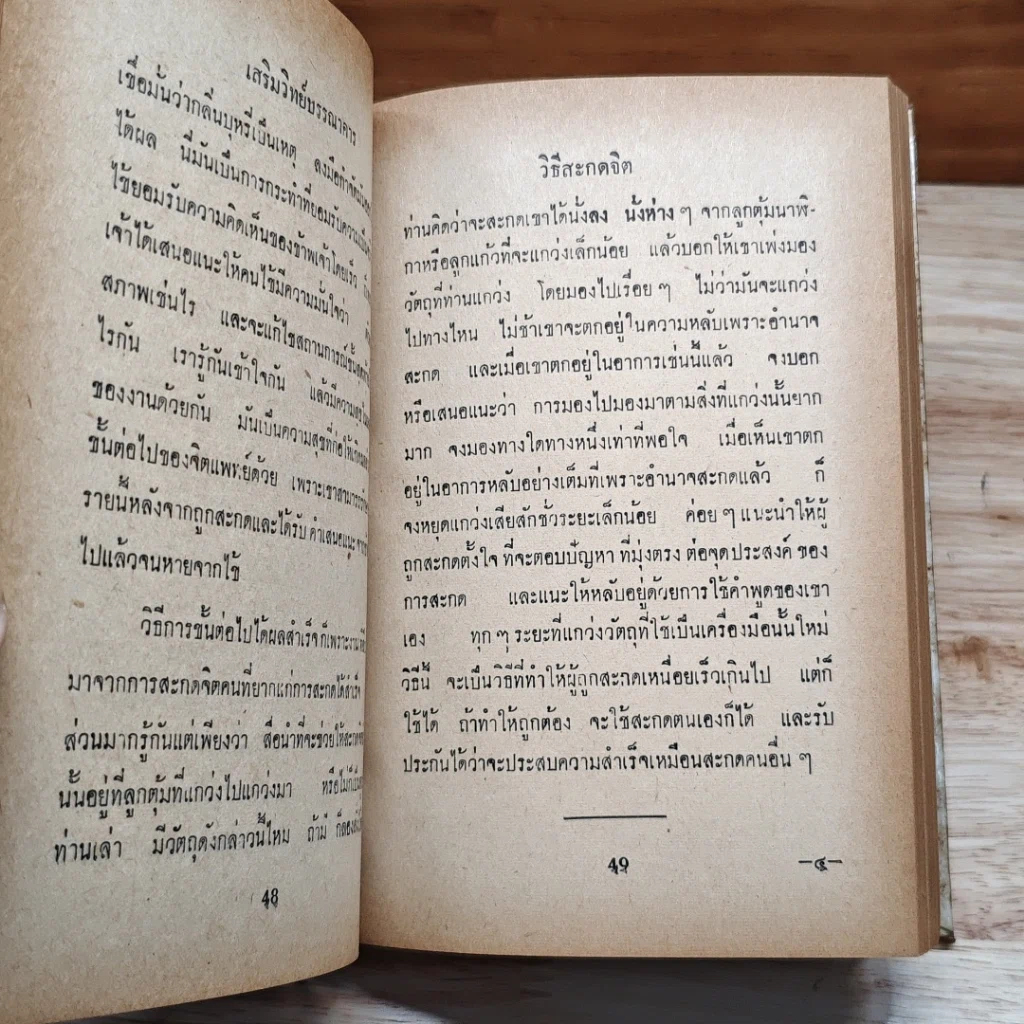 เสริมวิทย์บรรณาคาร
เชื่อมั่นว่ากลิ่นบุหรี่เป็นเหตุ ลงมือกำจัดมัน
ได้ผล นี่มันเป็นการกระทำที่ยอมรับความ
ไข้ยอมรับความคิดเห็นของข้าพเจ้าโดยเร็ว
เจ้าได้เสนอแนะให้คนไข้มีความมั่นใจว่า
สภาพเช่นไร และจะแก้ไขสถานการณ์ขั้น
ไรกัน เรารู้กันเข้าใจกัน แล้วมีความ
ของงานด้วยกัน มันเป็นความสุขที่ก่อให้
ขั้นต่อไปของจิตแพทย์ด้วย เพราะเขาสามารถ
รายนี้หลังจากถูกสะกดและได้รับ คำเสนอแนะ
ไปแล้วจนหายจากไข้
วิธีการขั้นต่อไปได้ผลสำเร็จ ก็เพราะ
มาจากการสะกดจิตคนที่ยากแก่การสะกดได้สำเร็จ
ส่วนมากรู้กันแต่เพียงว่า สื่อนำที่จะช่วยให้
นั้นอยู่ที่ลูกตุ้มที่แกว่งไปแกว่งมา หรือไม่ก็
ท่านเล่า มีวัตถุดังกล่าวนี้ไหม ถ้ามี ก็ลอง
48
วิธีสะกดจิต
ท่านคิดว่าจะสะกดเขาได้นั่งลง นั่งห่าง ๆ จากลูกตุ้มนาฬิ-
กาหรือลูกแก้วที่จะแกว่งเล็กน้อย แล้วบอกให้เขาเพ่งมอง
วัตถุที่ท่านแกว่ง โดยมองไปเรื่อย ๆ ไม่ว่ามันจะแกว่ง
ไปทางไหน ไม่ช้าเขาจะตกอยู่ในความหลับเพราะอำนาจ
สะกด และเมื่อเขาตกอยู่ในอาการเช่นนี้แล้ว จงบอก
หรือเสนอแนะว่า การมองไปมองมาตามสิ่งที่แกว่งนั้นยาก
มาก จงมองทางใดทางหนึ่งเท่าที่พอใจ เมื่อเห็นเขาตก
อยู่ในอาการหลับอย่างเต็มที่เพราะอำนาจสะกดแล้ว ก็
จงหยุดแกว่งเสียสักชั่วระยะเล็กน้อย ค่อย ๆ แนะนำให้ผู้
ถูกสะกดตั้งใจ ที่จะตอบปัญหา ที่มุ่งตรง ต่อจุดประสงค์ ของ
การสะกด และแนะให้หลับอยู่ด้วยการใช้คำพูดของเขา
เอง ทุก ๆ ระยะที่แกว่งวัตถุที่ใช้เป็นเครื่องมือนั้นใหม่
วิธีนี้ จะเป็นวิธีที่ทำให้ผู้ถูกสะกดเหนื่อยเร็วเกินไป แต่ก็
ใช้ได้ ถ้าทำให้ถูกต้อง จะใช้สะกดตนเองก็ได้ และรับ
ประกันได้ว่าจะประสบความสำเร็จเหมือนสะกดคนอื่น ๆ
49
—๔—